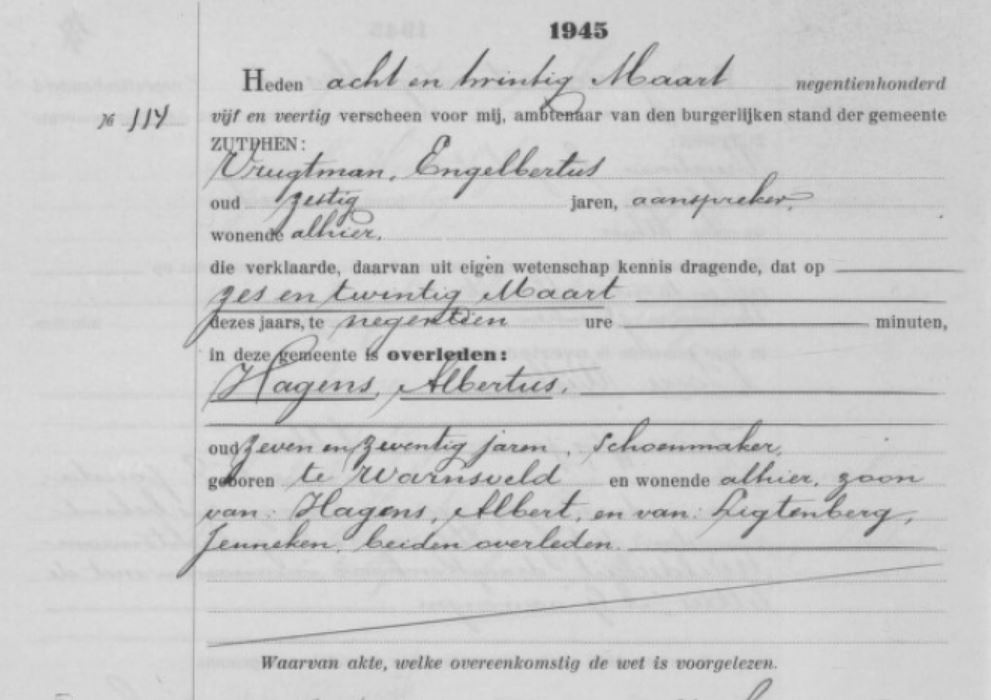 1945
Heden acht en twintig Maart negentienhonderd
№ 114 vijf en veertig verscheen voor mij, ambtenaar van den burgerlijken stand der gemeente
ZUTPHEN:
Vrugtman, Engelbertus
oud zestig jaren, aanspreker,
wonende alhier,
die verklaarde, daarvan uit eigen wetenschap kennis dragende, dat op
zes en twintig Maart
dezes jaars, te negentien ure minuten,
in deze gemeente is overleden:
Hagens, Albertus,
oud zeven en zeventig jaren, schoenmaker,
geboren te Warnsveld en wonende alhier, zoon
van: Hagens, Albert, en van: Ligtenberg,
Jenneken, beiden overleden.
Waarvan akte, welke overeenkomstig de wet is voorgelezen.